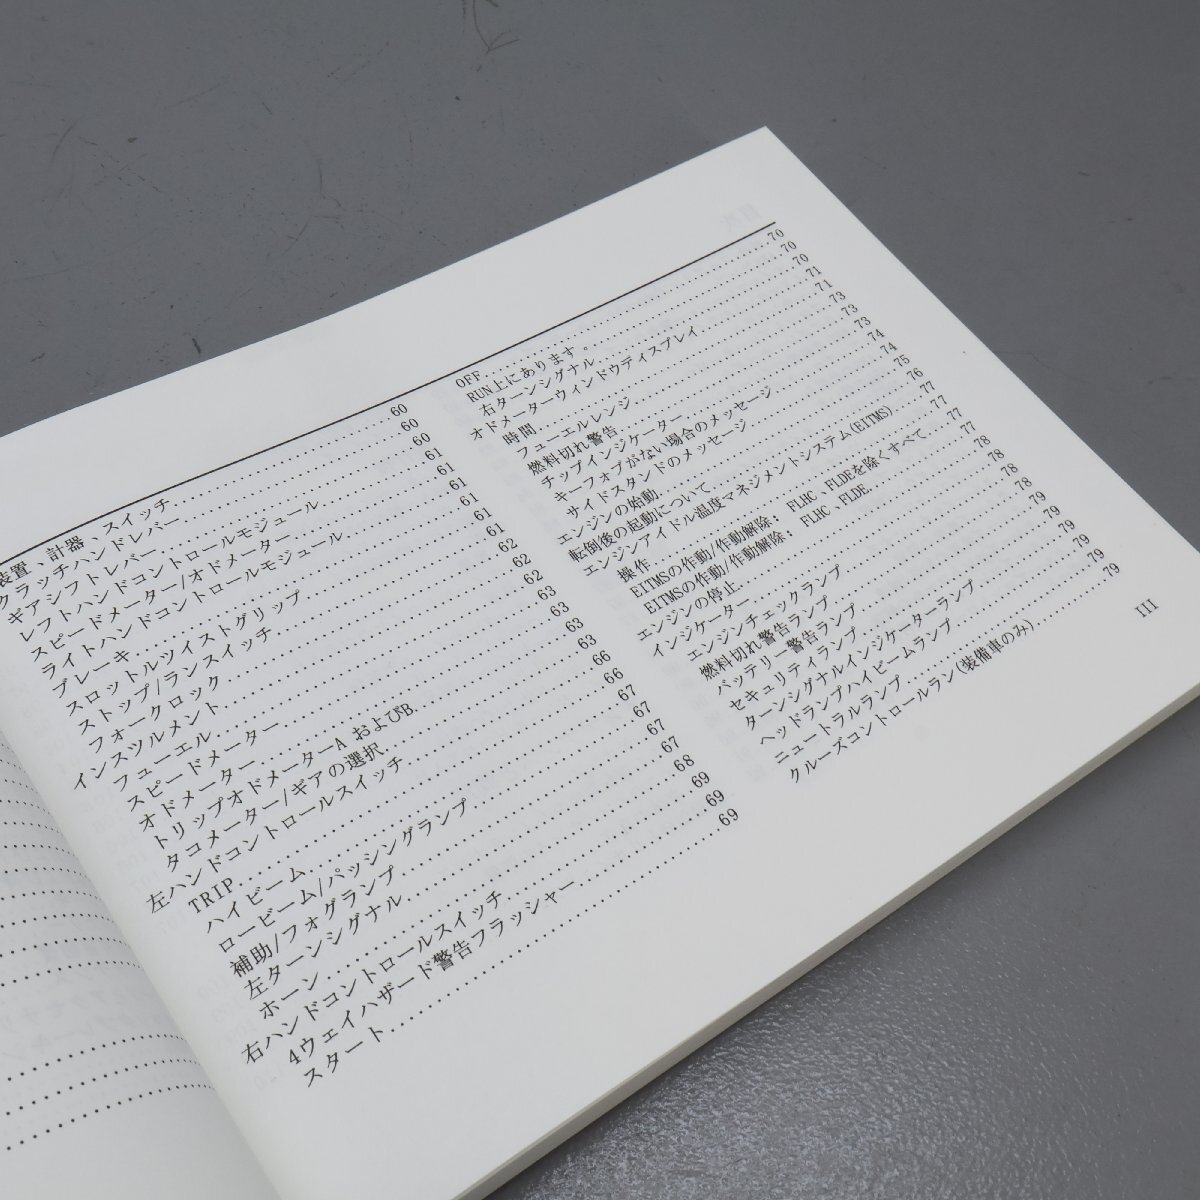 装置、計器、スイッチ 60
クラッチハンドレバー 60
ギアシフトレバー 60
レフトハンドコントロールモジュール 61
スピードメーター/オドメーター 61
ライトハンドコントロールモジュール 61
ブレーキ 61
スロットルツイストグリップ 61
ストップ/ランスイッチ 61
フォークロック 62
インスツルメント 62
フューエル 62
スピードメーター 63
オドメーター 63
トリップオドメーターA およびB 63
タコメーター/ギアの選択 63
左ハンドコントロールスイッチ 66
TRIP 66
ハイビーム 67
ロービーム/パッシングランプ 67
補助/フォグランプ 67
左ターンシグナル 67
ホーン 68
右ハンドコントロールスイッチ 69
4ウェイハザード警告フラッシャー 69
スタート 69
OFF 70
RUN上にあります。 70
右ターンシグナル 70
オドメーターウィンドウディスプレイ 71
時間 71
フューエルレンジ 73
燃料切れ警告 73
チップインジケーター 73
キーフォブがない場合のメッセージ 74
サイドスタンドのメッセージ 74
エンジンの始動 75
転倒後の起動について 76
エンジンアイドル温度マネジメントシステム(EITMS) 77
操作 77
EITMSの作動/作動解除: FLHC、FLDEを除くすべて 77
EITMSの作動/作動解除: FLHC、FLDE 77
エンジンの停止 78
インジケーター 78
エンジンチェックランプ 78
燃料切れ警告ランプ 78
バッテリー警告ランプ 79
セキュリティランプ 79
ターンシグナルインジケーターランプ 79
ヘッドランプハイビームランプ 79
ニュートラルランプ 79
クルーズコントロールラン(装備車のみ) 79
III